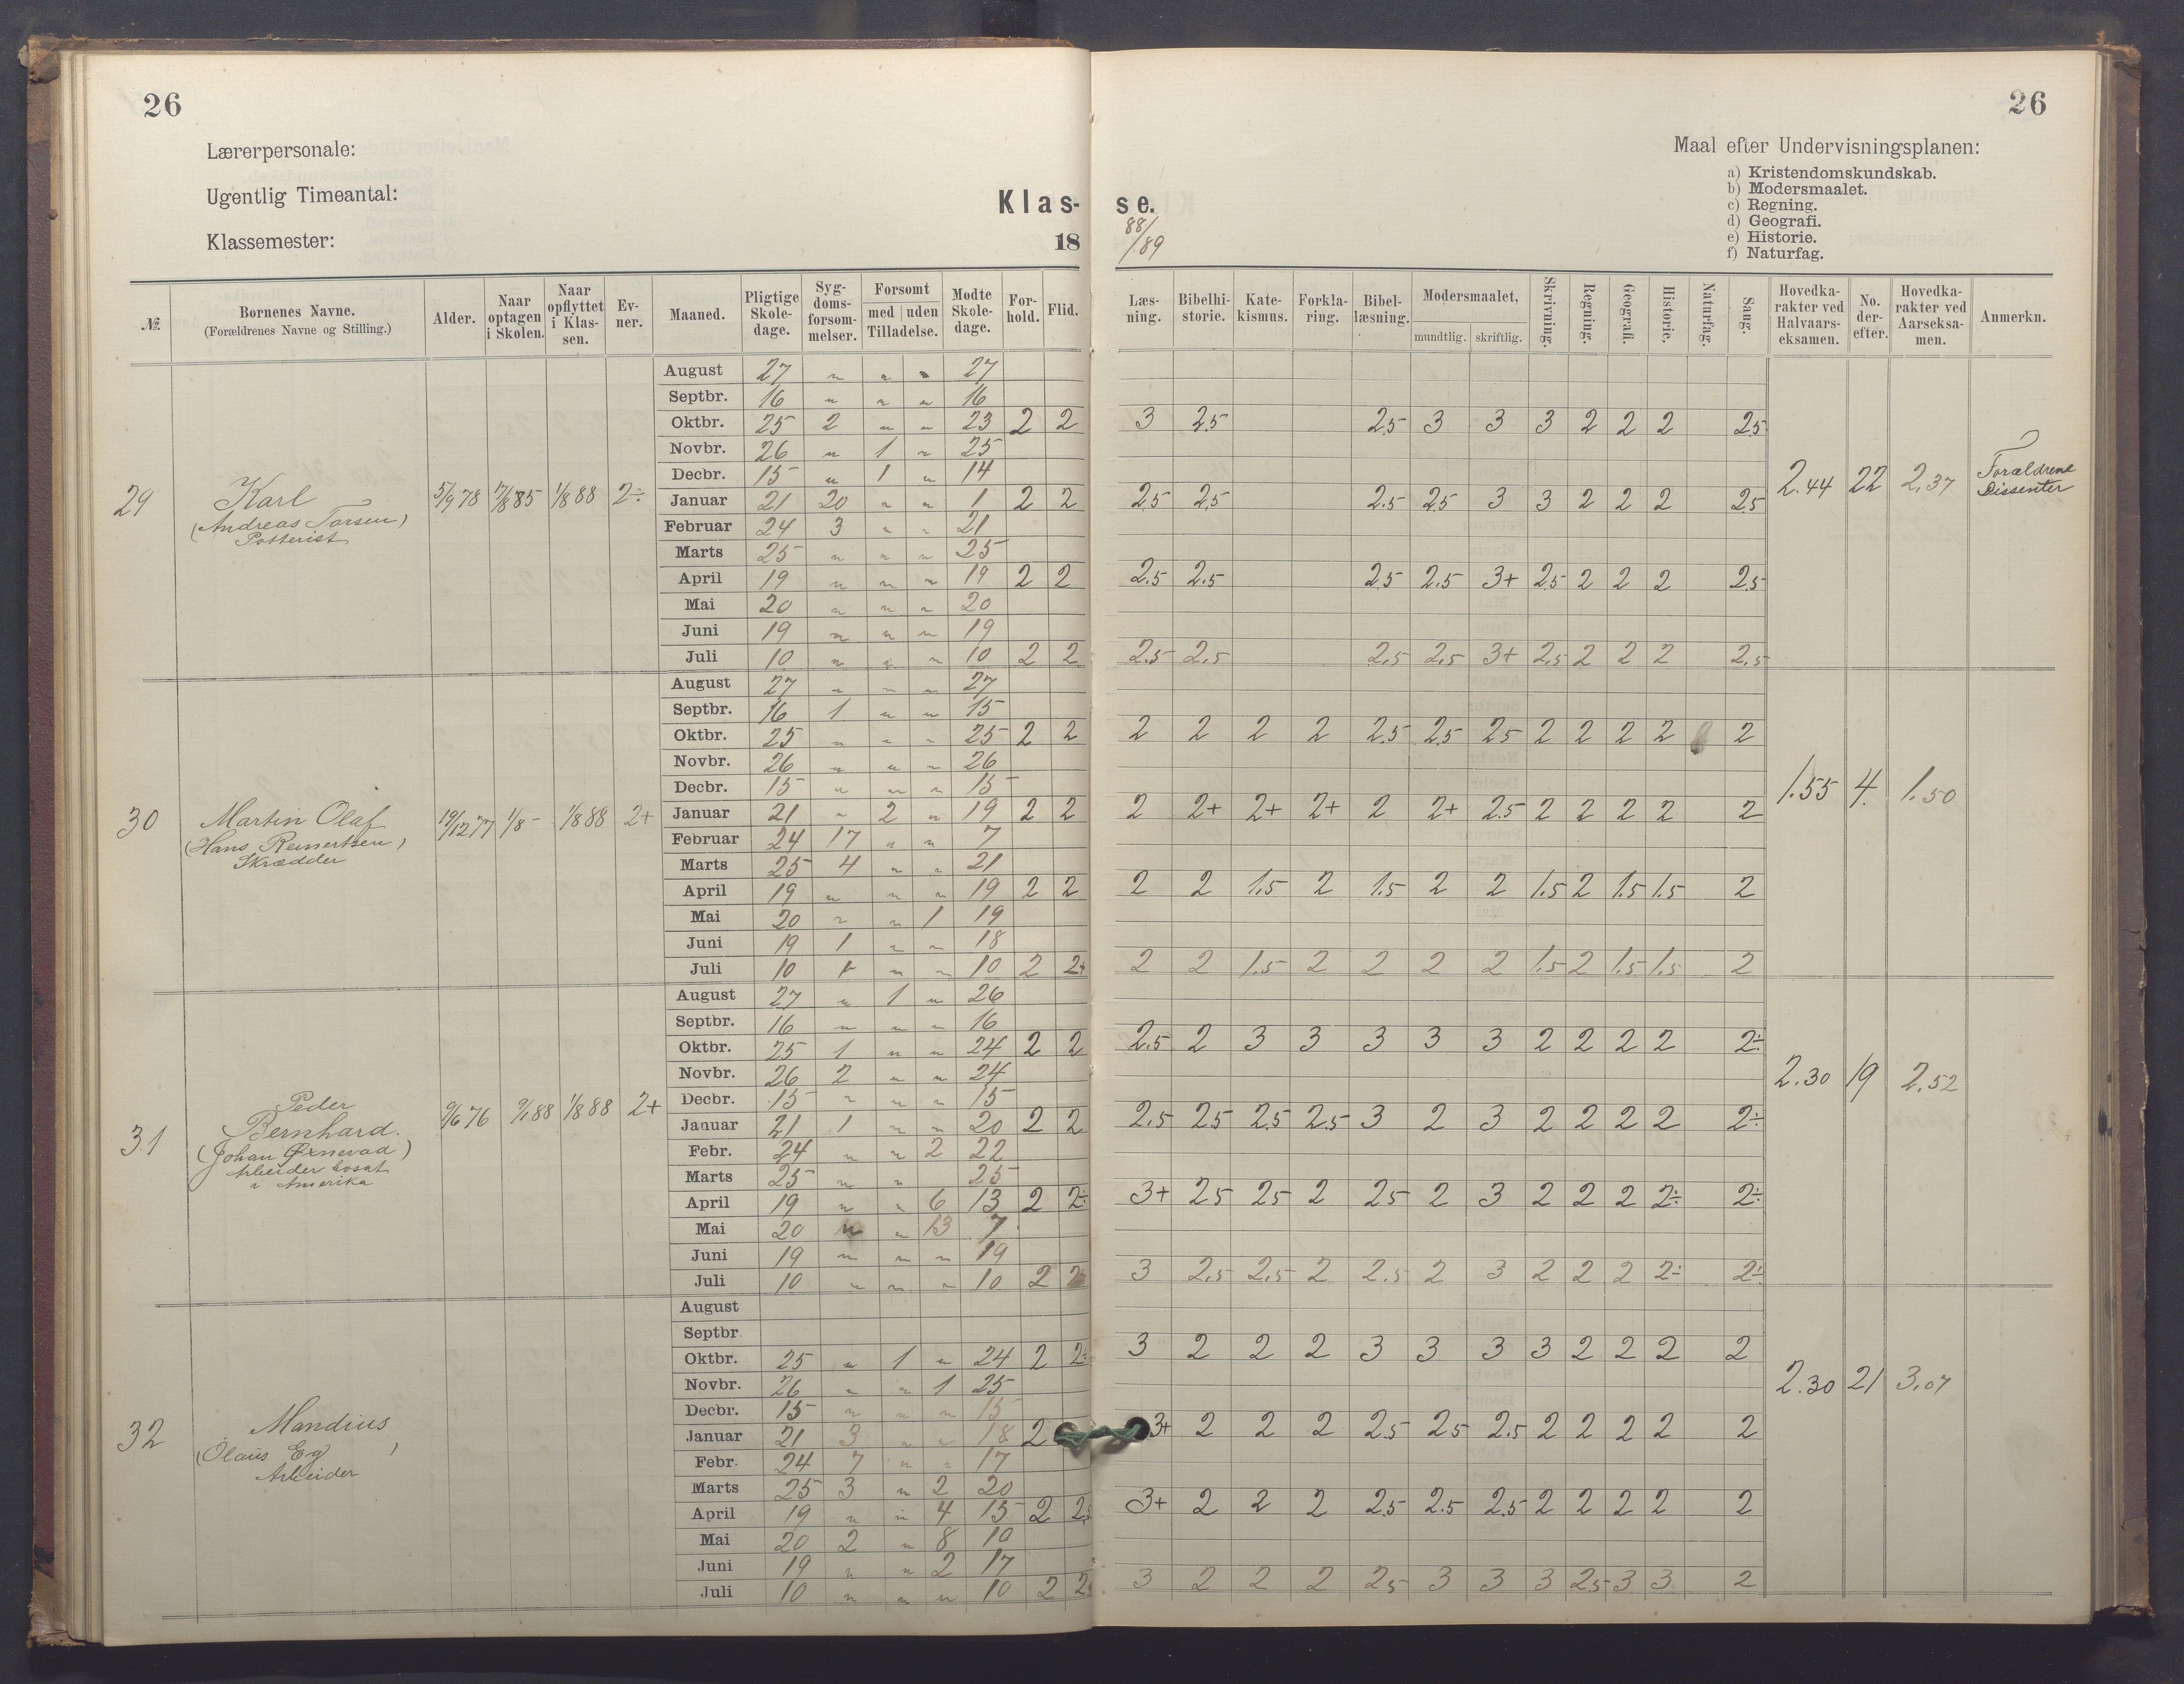 26
26
Lærerpersonale:
Ugentlig Timeantal:
Klassemester:
Klas-
se.
18
88/
/89
Maal efter Undervisningsplanen:
a) Kristendomskundskab.
b) Modersmaalet.
c) Regning.
d) Geografi.
e) Historie.
f) Naturfag.
№ Børnenes Navne. (Forældrenes Navne og Stilling.) Alder. Naar optagen i Skolen. Naar opflyttet i Klassen. Evner. Maaned. Pligtige Skoledage. Sygdomsforsommelser. Forsomt med uden Tilladelse. Mødte Skoledage. Forhold. Flid. Læsning. Bibelhistorie. Katekismus. Forklaring. Bibellæsning. Modersmaalet, mundtlig. skriftlig. Skrivning. Regning. Geografi. Historie. Naturfag. Sang. Hovedkarakter ved Halvaarseksamen. No. derefter. Hovedkarakter ved Aarseksamen. Anmerkn.
29 Karl
(Andreas Tarsen)
Potterist
5/9 78 17/8 85 1/8 88 2÷
August 27 " " " 27
Septbr. 16 " " " 16
Oktbr. 25 2 " " 23 2 2 3 2.5 2.5 3 3 3 2 2 2 2.5
Novbr. 26 " 1 " 25
Decbr. 15 " 1 " 14
Januar 21 20 " " 1 2 2 2.5 2.5 2.5 2.5 3 3 2 2 2 2.5
Februar 24 3 " " 21
Marts 25 " " " 25
April 19 " " " 19 2 2 2.5 2.5 2.5 2.5 3+ 2.5 2 2 2 2.5
Mai 20 " " " 20
Juni 19 " " " 19
Juli 10 " " " 10 2 2 2.5 2.5 2.5 2.5 3+ 2.5 2 2 2 2.5
2.44 22 2.37 Forældrene
Dissenter
30 Martin Olaf
(Hans Reinertsen)
Skrædder
19/12 77 1/8 - 1/8 88 2+
August 27 " " " 27
Septbr. 16 1 " " 15
Oktbr. 25 " " " 25 2 2 2 2 2 2 2.5 2.5 2.5 2 2 2 2 2
Novbr. 26 " " " 26
Decbr. 15 " " " 15
Januar 21 " 2 " 19 2 2 2 2+ 2+ 2+ 2 2+ 2.5 2 2 2 2 2
Februar 24 17 " " 7
Marts 25 4 " " 21
April 19 " " " 19 2 2 2 2 1.5 2 1.5 2 2 1.5 2 1.5 1.5 2
Mai 20 " " 1 19
Juni 19 1 " " 18
Juli 10 " " " 10 2 2+ 2 2 1.5 2 2 2 2 1.5 2 1.5 1.5 2
1.55 4. 1.50
31 Peder
Bernhard.
(Johan Ørnevad)
Arbeider bosat
i Amerika
9/6 76 9/1 88 1/8 88 2+
August 27 " 1 " 26
Septbr. 16 " " " 16
Oktbr. 25 1 " " 24 2 2 2.5 2 3 3 3 3 3 2 2 2 2 2÷
Novbr. 26 2 " " 24
Decbr. 15 " " " 15
Januar 21 1 " " 20 2 2 2.5 2.5 2.5 2.5 3 2 3 2 2 2 2 2÷
Febr. 24 " " 2 22
Marts 25 " " 25
April 19 " " 6 13 2 2÷ 3+ 2.5 2.5 2 2.5 2 3 2 2 2 2÷ 2÷
Mai 20 " " 13 7
Juni 19 " " " 19
Juli 10 " " " 10 2 2 3 2.5 2.5 2 2.5 2 3 2 2 2 2÷ 2÷
2.30 19 2.52
32 Mandius
(Olaus Eg)
Arbeider
August
Septbr
Oktbr. 25 " 1 " 24 2 2÷ 3 2 2 2 3 3 3 3 2 2 2 2
Novbr. 26 " " 1 25
Decbr. 15 " " " 15
Januar 21 3 " " 18 2 3+ 2 2 2 2.5 2.5 2.5 2 2 2 2 2
Febr. 24 7 " " 17
Marts 25 3 " 2 20
April 19 " " 4 15 2 2÷ 3+ 2 2 2 2.5 2.5 2.5 2 2 2 2 2
Mai 20 2 " 8 10
Juni 19 " " 2 17
Juli 10 " " " 10 2 2 3 2 2 2 2.5 3 3 3 2.5 3 3 2
2.30 21 3.07